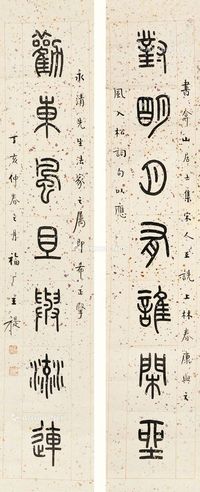 書山居士集宋人王詵上林春康與之
對明月有誰閒坐
風入松詞句以應
永清先生法家之屬即希正
勸東風且與流連
丁亥仲春之月福厂王禔